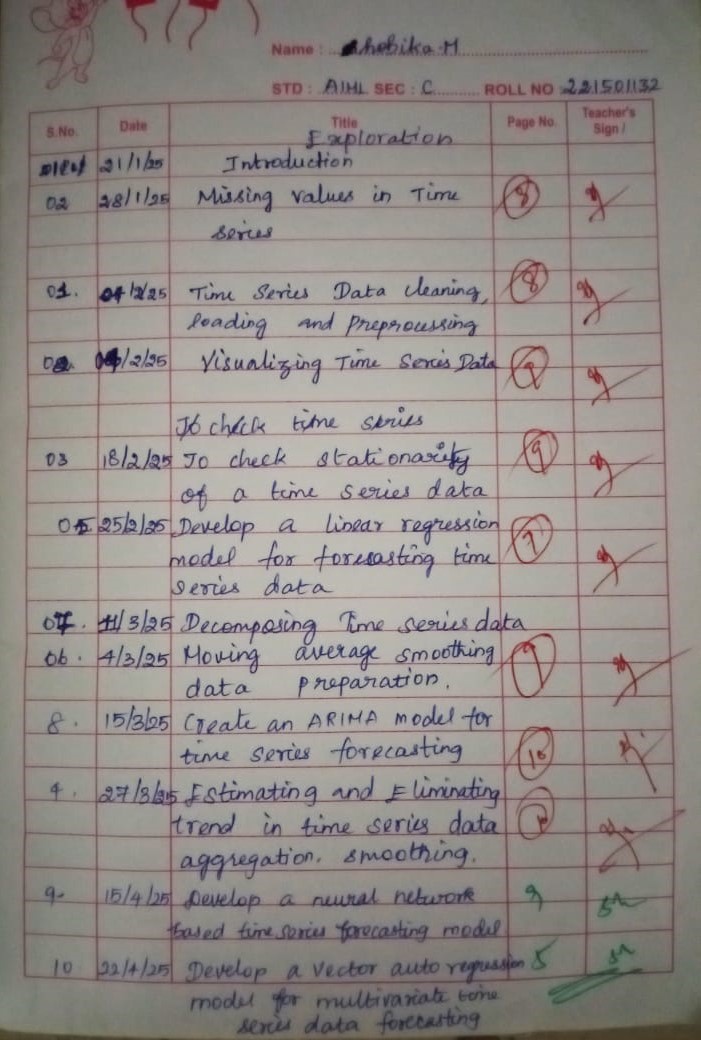 Name : Shobika.M
STD : AIML SEC : C ROLL NO : 221501132
S.No. Date Title Page No. Teacher's Sign /
Exploration
21/1/25 Introduction
02 28/1/25 Missing values in Time 8
series
01. 04/2/25 Time Series Data cleaning, 8
loading and preprocessing
02. /2/25 Visualizing Time Series Data 9
To check time series
03 18/2/25 To check stationarity 9
of a time series data
05 25/2/25 Develop a linear regression 9
model for forecasting time
series data
07. 11/3/25 Decomposing Time series data
06. 4/3/25 Moving average smoothing 9
data preparation.
8. 15/3/25 Create an ARIMA model for
time series forecasting 10
4. 27/3/25 Estimating and Eliminating
trend in time series data
aggregation. smoothing.
9. 15/4/25 Develop a neural network 9
based time series forecasting model
10 22/4/25 Develop a vector auto regression 5
model for multivariate time
series data forecasting